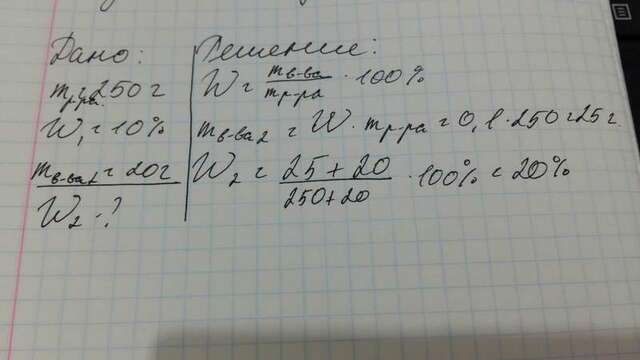 Дано:
m р-ра = 250 г
W₁ = 10%
m в-ва₂ = 20 г
W₂ - ?
Решение:
W = m в-ва / m р-ра · 100%
m в-ва₂ = W · m р-ра = 0,1 · 250 = 25 г.
W₂ = 25 + 20 / 250 + 20 · 100% = 20%